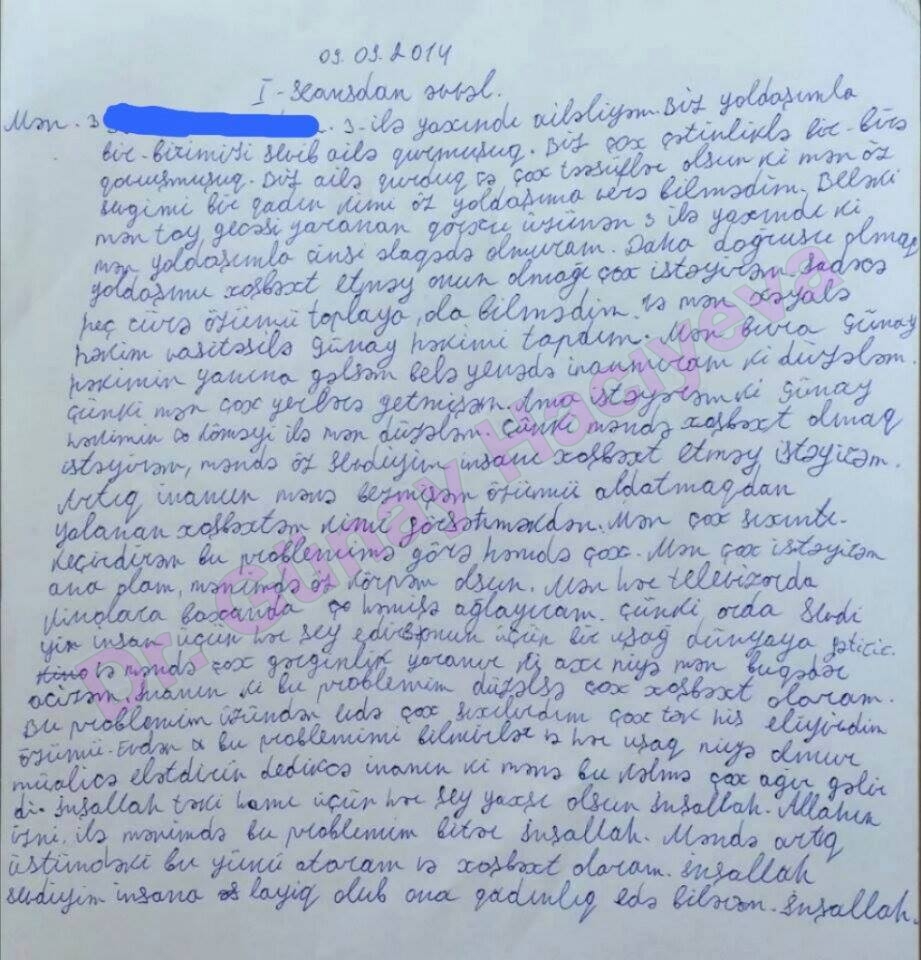 09.09.2014
I - seansdan əvvəl.
Mən. 3 3-ilə yaxındı ailəliyəm. Biz yoldaşımla
bir-birimizi sevib ailə qurmuşuq. Biz çox çətinliklə bir-birə
qovuşmuşuq. Biz ailə qurduq və çox təəsüflər olsun ki mən öz
sevgimi bir qadın kimi öz yoldaşıma verə bilmədim. Beləki
mən toy gecəsi yaranan qorxu üzünən 3 ilə yaxındı ki
mən yoldaşımla cinsi əlaqədə olmuram. Daha doğrusu olmağ
yoldaşımı xoşbəxt etməy onun olmağı çox istəyirəm. Sadəcə
heç cürə özümü toplaya, da bilmədim. və mən xəyalə
həkim vasitəsilə Günay həkimi tapdım. Mən bura Günay
həkimin yanına gəlsəm belə yenədə inanmıram ki düzələm.
Çünki mən çox yerlərə getmişəm. Ama istəyirəm ki Günay
həkimin köməyi ilə mən düzələm. Çünki məndə xoşbəxt olmaq
istəyirəm, məndə öz sevdiyim insanı xoşbəxt etməy istəyirəm.
Artıq inanın mənə bezmişəm özümü aldatmaqdan
yalanan xoşbəxtəm kimi görsətməkdən. Mən çox sıxıntı-
keçirdirəm bu problemimə görə həmdə çox. Mən çox istəyirəm
ana olam, mənimdə öz körpəm olsun. Mən hər televizorda
kinolara baxanda həmişə ağlayıram. Çünki orda sevdi
yin insan üçün hər şey edir onun üçün bir uşağ dünyaya gətirir.
və məndə çox gərginlik yaranır ki axı niyə mən buqədər
acizəm. İnanın ki bu problemim düzəlsə çox xoşbəxt olaram.
Bu problemim üzündən evdə çox sıxılırdım çox tək his eliyirdim
özümü. Evdən bu problemimi bilmirlər və hər uşaq niyə olmur
müalicə elətdirin dedikcə inanın ki mənə bu kəlmə çox ağır gəlir
di. İnşallah təki hamı üçün hər şey yaxşı olsun inşallah. Allahın
izni, ilə mənimdə bu problemim bitər inşallah. Məndə artıq
üstümdəki bu yükü ataram və xoşbəxt olaram. inşallah
sevdiyim insana layiq olub ona qadınlıq edə bilərəm. inşallah.
Dr. Günay Hacıyeva